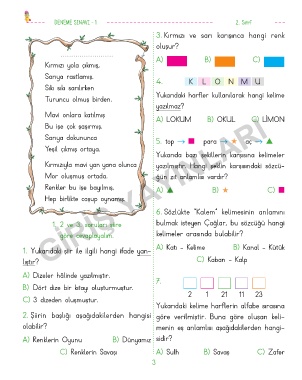 DENEME SINAVI - 1
2. Sınıf
Kırmızı yola çıkmış,
Sarıya rastlamış.
Sıkı sıkı sarılırken
Turuncu olmuş birden.
Mavi onlara katılmış
Bu işe çok şaşırmış.
Sarıya dokununca
Yeşil çıkmış ortaya.
Kırmızıyla mavi yan yana olunca
Mor oluşmuş ortada.
Renkler bu işe bayılmış,
Hep birlikte coşup oynamış.
2 ve 3. soruları şiire
göre cevaplayalım.
1. Yukarıdaki şiir ile ilgili hangi ifade yan-
lıştır?
A) Dizeler hâlinde yazılmıştır.
B) Dört dize bir kıtayı oluşturmuştur.
C) 3 dizeden oluşmuştur.
2. Şiirin başlığı aşağıdakilerden hangisi
olabilir?
A) Renklerin Oyunu B) Dünyamız
C) Renklerin Savaşı
3. Kırmızı ve sarı karışınca hangi renk
oluşur?
A) B) C)
4. K L O N M U
Yukarıdaki harfler kullanılarak hangi kelime
yazılmaz?
A) LOKUM B) OKUL C) LİMON
5. top → para → aç →
Yukarıda bazı şekillerin karşısına kelimeler
yazılmıştır. Hangi şeklin karşısındaki sözcü-
ğün zıt anlamlısı vardır?
A) B) C)
6. Sözlükte "Kalem" kelimesinin anlamını
bulmak isteyen Çağlar, bu sözcüğü hangi
kelimeler arasında bulabilir?
A) Katı - Kelime B) Kanal - Kütük
C) Kaban - Kalp
7.
2 1 21 11 23
Yukarıdaki kelime harflerin alfabe sırasına
göre verilmiştir. Buna göre oluşan keli-
menin eş anlamlısı aşağıdakilerden hangi-
sidir?
A) Sulh B) Savaş C) Zafer
3